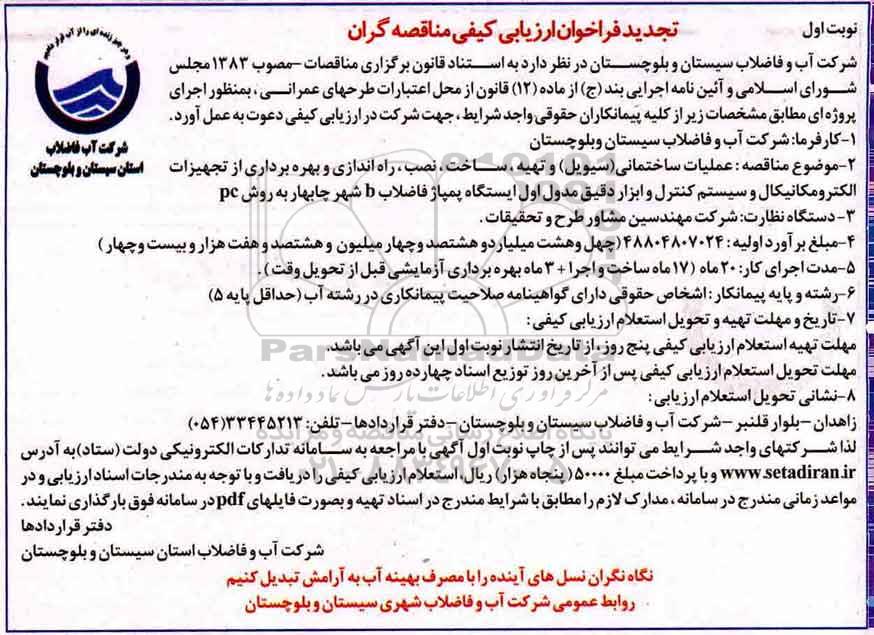 نوبت اول
تجدید فراخوان ارزیابی کیفی مناقصه گران
و در جز زنده ای را از آب قرار دادیم
شرکت آب فاضلاب
استان سیستان و بلوچستان
شرکت آب و فاضلاب سیستان و بلوچستان در نظر دارد به استناد قانون برگزاری مناقصات -مصوب ۱۳۸۳ مجلس
شورای اسلامی و آئین نامه اجرایی بند (ج) از ماده (۱۲) قانون از محل اعتبارات طرحهای عمرانی، بمنظور اجرای
پروژه ای مطابق مشخصات زیر از کلیه پیمانکاران حقوقی واجد شرایط، جهت شرکت در ارزیابی کیفی دعوت به عمل آورد.
۱-کارفرما: شرکت آب و فاضلاب سیستان وبلوچستان
۲-موضوع مناقصه: عملیات ساختمانی (سیویل) و تهیه، ساخت، نصب، راه اندازی و بهره برداری از تجهیزات
الکترومکانیکال و سیستم کنترل و ابزار دقیق مدول اول ایستگاه پمپاژ فاضلاب b شهر چابهار به روش pc
۳- دستگاه نظارت: شرکت مهندسین مشاور طرح و تحقیقات.
۴-مبلغ برآورد اولیه: ۴۸۸۰۴۸۰۷۰۲۴ (چهل وهشت میلیارد و هشتصد و چهار میلیون و هشتصد و هفت هزار و بیست وچهار)
۵-مدت اجرای کار: ۲۰ ماه (۱۷ ماه ساخت و اجرا + ۳ ماه بهره برداری آزمایشی قبل از تحویل وقت).
۶-رشته و پایه پیمانکار: اشخاص حقوقی دارای گواهینامه صلاحیت پیمانکاری در رشته آب (حداقل پایه ۵)
۷-تاریخ و مهلت تهیه و تحویل استعلام ارزیابی کیفی:
مهلت تهیه استعلام ارزیابی کیفی پنج روز، از تاریخ انتشار نوبت اول این آگهی می باشد.
مهلت تحویل استعلام ارزیابی کیفی پس از آخرین روز توزیع اسناد چهارده روز می باشد.
۸-نشانی تحویل استعلام ارزیابی:
زاهدان -بلوار قلنبر -شرکت آب و فاضلاب سیستان و بلوچستان - دفتر قراردادها -تلفن: ۳۳۴۴۵۲۱۳(۰۵۴)
لذا شرکتهای واجد شرایط می توانند پس از چاپ نوبت اول آگهی با مراجعه به سامانه تدارکات الکترونیکی دولت (ستاد) به آدرس
www.setadiran.ir و با پرداخت مبلغ ۵۰۰۰۰ (پنجاه هزار) ریال، استعلام ارزیابی کیفی را دریافت و با توجه به مندرجات اسناد ارزیابی و در
مواعد زمانی مندرج در سامانه، مدارک لازم را مطابق با شرایط مندرج در اسناد تهیه و بصورت فایلهای pdf در سامانه فوق بارگذاری نمایند.
دفتر قراردادها
شرکت آب و فاضلاب استان سیستان و بلوچستان
نگاه نگران نسل های آینده را با مصرف بهینه آب به آرامش تبدیل کنیم
روابط عمومی شرکت آب و فاضلاب شهری سیستان و بلوچستان
ParsNamadData
مرکز فرآوری اطلاعات پارس نماد داده ها
پایگاه اطلاع رسانی مناقصه و مزایده